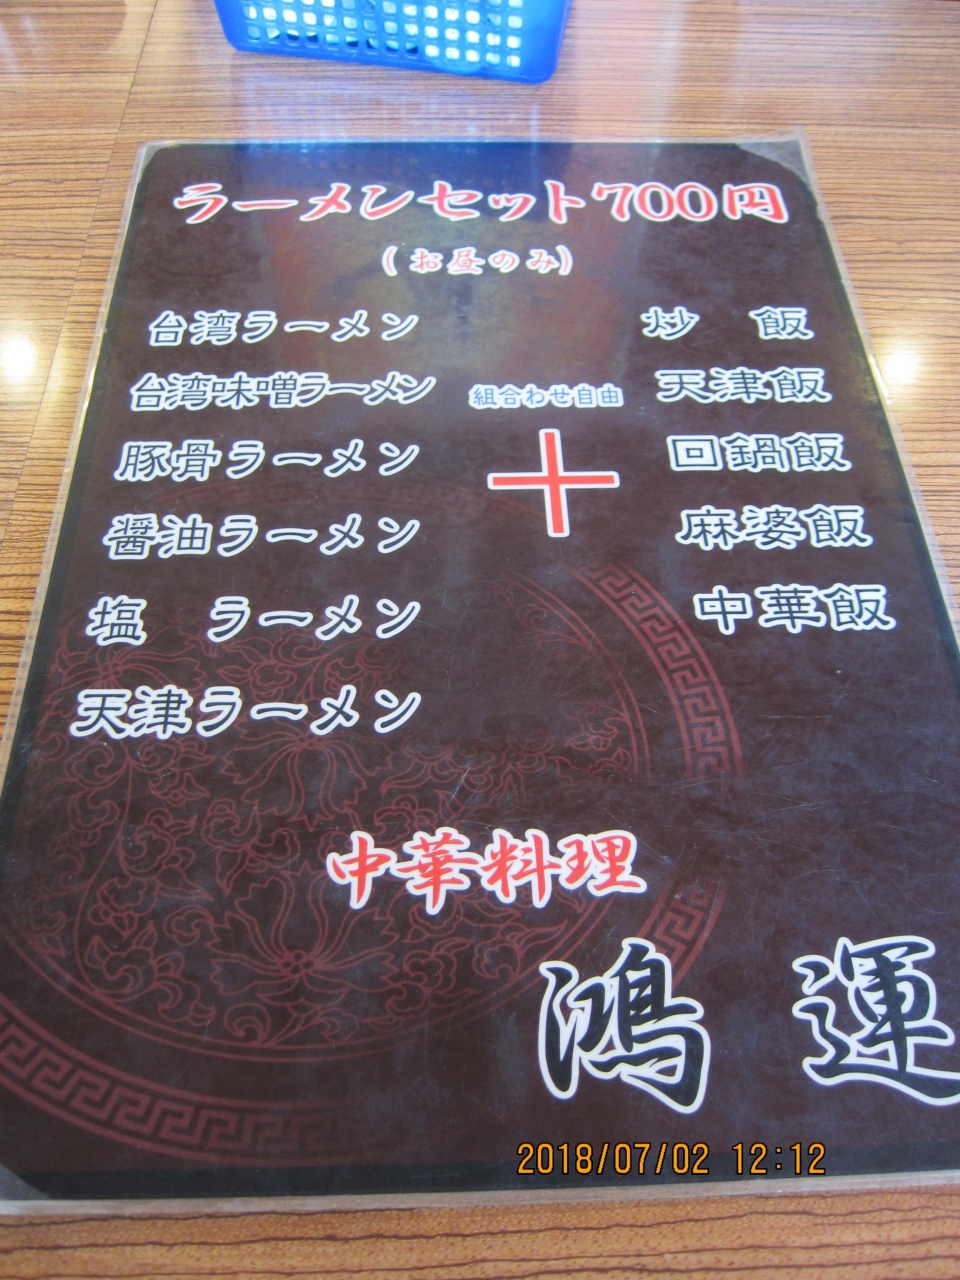 ラーメンセット700円
(お昼のみ)
台湾ラーメン
台湾味噌ラーメン
豚骨ラーメン
醤油ラーメン
塩 ラーメン
天津ラーメン
組合わせ自由
+
炒 飯
天津飯
回鍋飯
麻婆飯
中華飯
中華料理
鴻運
2018/07/02 12:12